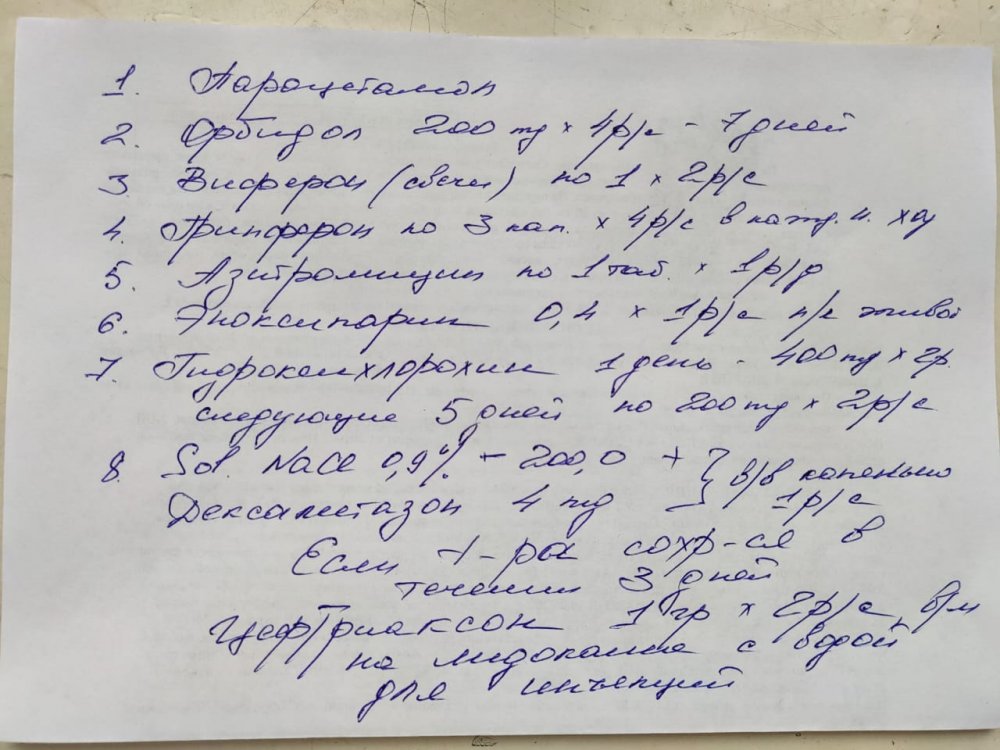 1. Парацетамол
2. Орбидол 200 mg × 4р/с - 7 дней
3 Виферон (свечи) по 1 × 2р/с
4. Грипферон по 3 кап. × 4р/с в кажд. н. ход
5. Азитромицин по 1 таб. × 1р/д
6. Эноксипарин 0,4 × 1р/с п/к живот
7. Гидроксихлорохин 1 день - 400 mg × 2р.
следующие 5 дней по 200 mg × 2р/с
8. Sol. NaCl 0,9% - 200,0 + } в/в капельно
Дексаметазон 4 mg 1р/с
Если t-ра сохр-ся в
течении 3 дней
Цефтриаксон 1 гр × 2р/с в/м
на лидокаине с водой
для инъекций